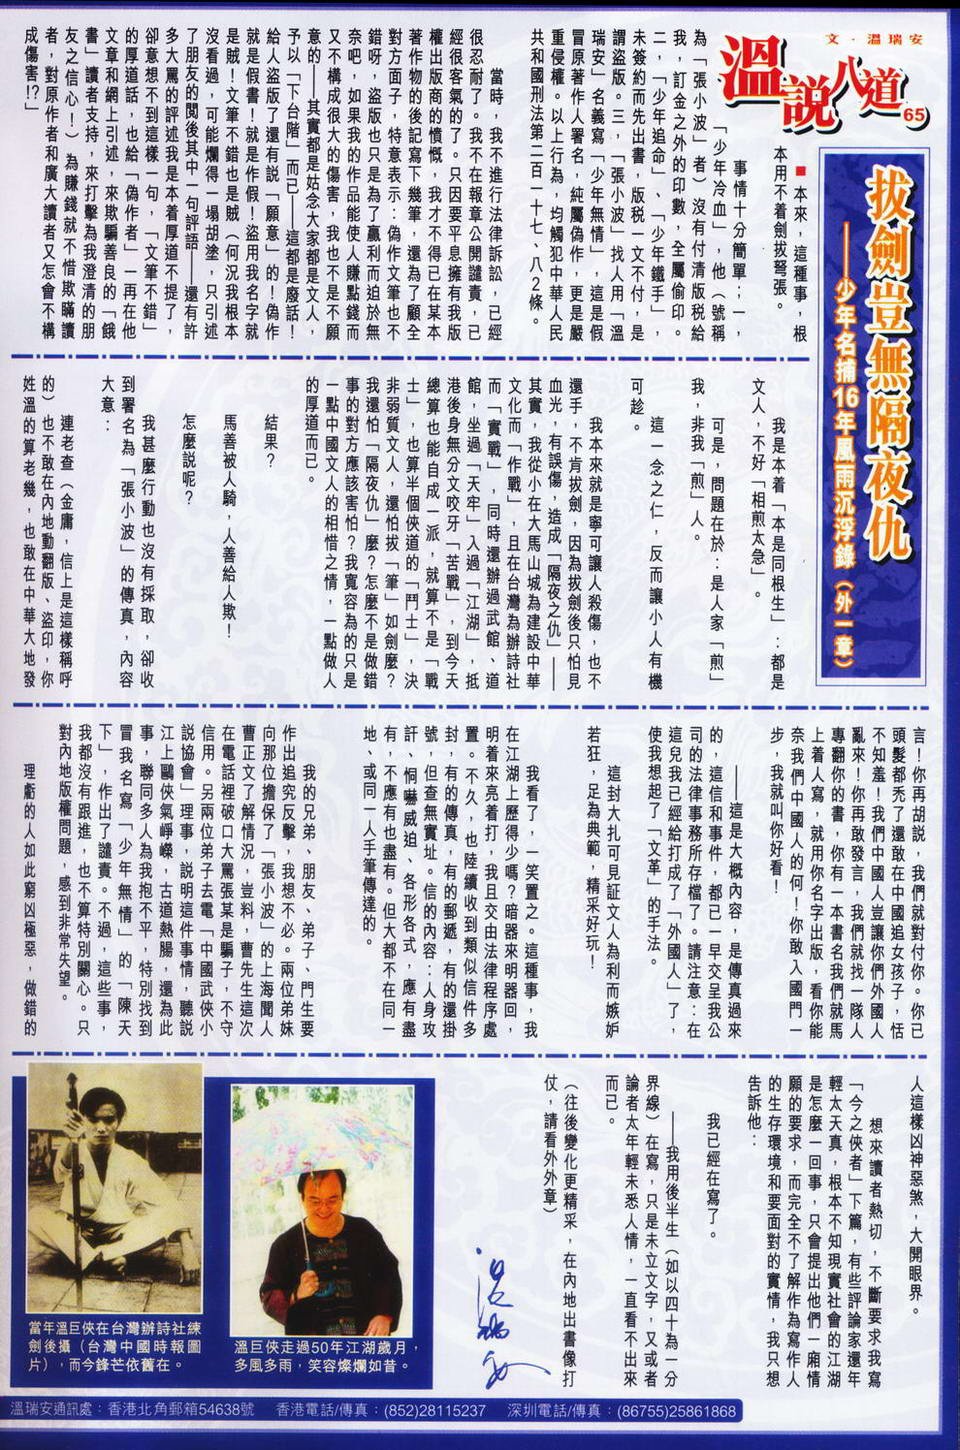 文·溫瑞安
溫說八道65
拔劍豈無隔夜仇
——少年名捕16年風雨沉浮錄（外一章）
■本來，這種事，根
本用不着劍拔弩張。
事情十分簡單；一，
「少年冷血」，他（號稱
為「張小波」者）沒有付清版稅給
我，訂金之外的印數，全屬偷印。
二，「少年追命」、「少年鐵手」，
未簽約而先出書，版稅一文不付，是
謂盜版。三，「張小波」找人用「溫
瑞安」名義寫「少年無情」，這是假
冒原著作人署名，純屬偽作，更是嚴
重侵權。以上行為，均觸犯中華人民
共和國刑法第二百一十七、八2條。
當時，我不進行法律訴訟，已經
很忍耐了。我不在報章公開譴責，已
經很客氣的了。只因要平息擁有我版
權出版商的憤慨，我才不得已在某本
著作物的後記寫下幾筆，還為了顧全
對方面子，特意表示：偽作文筆也不
錯呀，盜版也只是為了贏利而迫於無
奈吧，如果我的作品能使人賺點錢而
又不構成很大的傷害，我也不是不願
意的——其實都是姑念大家都是文人，
予以「下台階」而已——這都是廢話！
給人盜版了還有說「願意」的！偽作
就是假書！就是作假！盜用我名字就
是賊！文筆不錯也是賊（何況我根本
沒看過，可能爛得一塌胡塗，只引述
了朋友的閱後其中一句評語——還有許
多大罵的評述我是本着厚道不提了，
卻意想不到這樣一句，「文筆不錯」
的厚道話，也給「偽作者」一再在他
文章和網上引述，來欺騙善良的「餓
書」讀者支持，來打擊為我澄清的朋
友之信心！）為賺錢就不惜欺瞞讀
者，對原作者和廣大讀者又怎會不構
成傷害!?」
我是本着「本是同根生」：都是
文人，不好「相煎太急」。
可是，問題在於：是人家「煎」
我，非我「煎」人。
這一念之仁，反而讓小人有機
可趁。
我本來就是寧可讓人殺傷，也不
還手，不肯拔劍，因為拔劍後只怕見
血光，有誤傷，造成「隔夜之仇」——
其實，我從小在大馬山城為建設中華
文化而「作戰」，且在台灣為辦詩社
而「實戰」，同時還辦過武館、道
館，坐過「天牢」，入過「江湖」，抵
港後身無分文咬牙「苦戰」，到今天
總算也能自成一派，就算不是「戰
士」，也算半個俠道的「鬥士」，決
非弱質文人，還怕拔「筆」如劍麼？
我還怕「隔夜仇」麼？怎麼不是做錯
事的對方應該害怕？我寬容為的只是
一點中國文人的相惜之情，一點做人
的厚道而已。
結果？
馬善被人騎，人善給人欺！
怎麼說呢？
我甚麼行動也沒有採取，卻收
到署名為「張小波」的傳真，內容
大意：
連老查（金庸，信上是這樣稱呼
的）也不敢在內地動翻版、盜印，你
姓溫的算老幾，也敢在中華大地發
言！你再胡說，我們就對付你。你已
頭髮都禿了還敢在中國追女孩子，恬
不知羞！我們中國人豈讓你們外國人
亂來！你再敢發言，我們就找一隊人
專翻你的書，你有一本書名我們就馬
上着人寫，就用你名字出版，看你能
奈我們中國人的何！你敢入國門一
步，我就叫你好看！
——這是大概內容，是傳真過來
的，這信和事件，都已一早交呈我公
司的法律事務所存檔了。請注意：在
這兒我已經給打成了「外國人」了，
使我想起了「文革」的手法。
這封大扎可見証文人為利而嫉妒
若狂，足為典範，精采好玩！
我看了，一笑置之。這種事，我
在江湖上歷得少嗎？暗器來明器回，
明着來亮着打，我且交由法律程序處
置。不久，也陸續收到類似信件多
封，有的傳真，有的郵遞，有的還掛
號，但查無實址。信的內容：人身攻
訐、恫嚇威迫、各形各式，應有盡
有，不應有也盡有。但大都不在同一
地、或同一人手筆傳達的。
我的兄弟、朋友、弟子、門生要
作出追究反擊，我想不必。兩位弟妹
向那位擔保了「張小波」的上海聞人
曹正文了解情況，豈料，曹先生這次
在電話裡破口大罵張某是騙子，不守
信用。另兩位弟子去電「中國武俠小
說協會」理事，說明這件事情，聽說
江上鷗俠氣崢嶸，古道熱腸，還為此
事，聯同多人為我抱不平，特別找到
冒我名寫「少年無情」的「陳天
下」，作出了譴責。不過，這些事，
我都沒有跟進，也不算特別關心。只
對內地版權問題，感到非常失望。
理虧的人如此窮凶極惡，做錯的
人這樣凶神惡煞，大開眼界。
想來讀者熱切，不斷要求我寫
「今之俠者」下篇，有些評論家還年
輕太天真，根本不知現實社會的江湖
是怎麼一回事，只會提出他們一廂情
願的要求，而完全不了解作為寫作人
的生存環境和要面對的實情，我只想
告訴他：
我已經在寫了。
——我用後半生（如以四十為一分
界線）在寫，只是未立文字，又或者
論者太年輕未悉人情，一直看不出來
而已。
（往後變化更精采，在內地出書像打
仗，請看外外章）
溫瑞安
溫巨俠走過50年江湖歲月，
多風多雨，笑容燦爛如昔。
當年溫巨俠在台灣辦詩社練
劍後攝（台灣中國時報圖
片），而今鋒芒依舊在。
溫瑞安通訊處：香港北角郵箱54638號　香港電話/傳真：(852)28115237　深圳電話/傳真：(86755)25861868